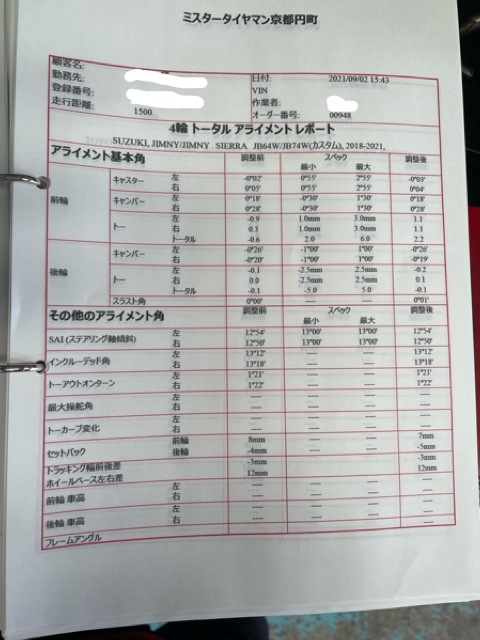 ミスタータイヤマン京都円町
顧客名:
勤務先: 日付: 2021/09/02 15:43
登録番号: VIN
走行距離: 1500 作業者:
オーダー番号: 00948
4輪 トータル アライメント レポート
SUZUKI, JIMNY/JIMNY SIERRA JB64W/JB74W(カスタム), 2018-2021,
アライメント基本角 調整前 スペック 調整後
最小 最大
前輪 キャスター 左 -0°02' 0°55' 2°55' -0°03'
右 0°05' 0°55' 2°55' 0°04'
キャンバー 左 0°18' -0°30' 1°30' 0°18'
右 0°28' -0°30' 1°30' 0°28'
トー 左 -0.9 1.0mm 3.0mm 1.1
右 0.3 1.0mm 3.0mm 1.1
トータル -0.6 2.0 6.0 2.2
後輪 キャンバー 左 -0°26' -1°00' 1°00' -0°26'
右 -0°20' -1°00' 1°00' -0°19'
トー 左 -0.1 -2.5mm 2.5mm -0.2
右 0.0 -2.5mm 2.5mm 0.1
トータル -0.1 -5.0 5.0 -0.1
スラスト角 0°00' ---- ---- 0°01'
その他のアライメント角 調整前 スペック 調整後
最小 最大
SAI (ステアリング軸傾斜) 左 12°54' 13°00' 13°00' 12°54'
右 12°50' 13°00' 13°00' 12°50'
インクルーデッド角 左 13°12' ---- ---- 13°12'
右 13°18' ---- ---- 13°18'
トーアウトオンターン 左 1°21' ---- ---- 1°21'
右 1°22' ---- ---- 1°22'
最大操舵角 左 ---- ---- ---- ----
右 ---- ---- ---- ----
トーカーブ変化 左 ---- ---- ---- ----
右 ---- ---- ---- ----
セットバック 前輪 8mm ---- ---- 7mm
後輪 -4mm ---- ---- -5mm
トラッキング幅前後差 -3mm ---- ---- -3mm
ホイールベース左右差 12mm ---- ---- 12mm
前輪 車高 左 ---- ---- ---- ----
右 ---- ---- ---- ----
後輪 車高 左 ---- ---- ---- ----
右 ---- ---- ---- ----
フレームアングル